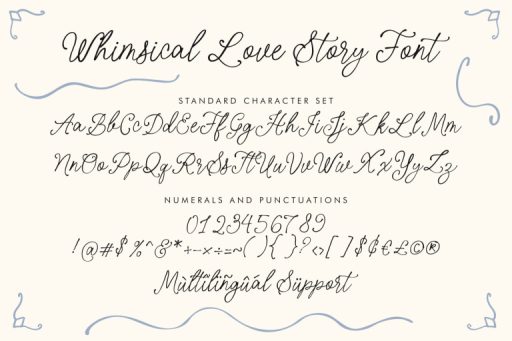 Whimsical Love Story Font
STANDARD CHARACTER SET
Aa Bb Cc Dd Ee Ff Gg Hh Ii Jj Kk Ll Mm
Nn Oo Pp Qq Rr Ss Tt Uu Vv Ww Xx Yy Zz
NUMERALS AND PUNCTUATIONS
0123456789
!@#$%^&*+-×÷=~(){}?<>[]$¢€£©®
Mùltîlïñgûál Süpport